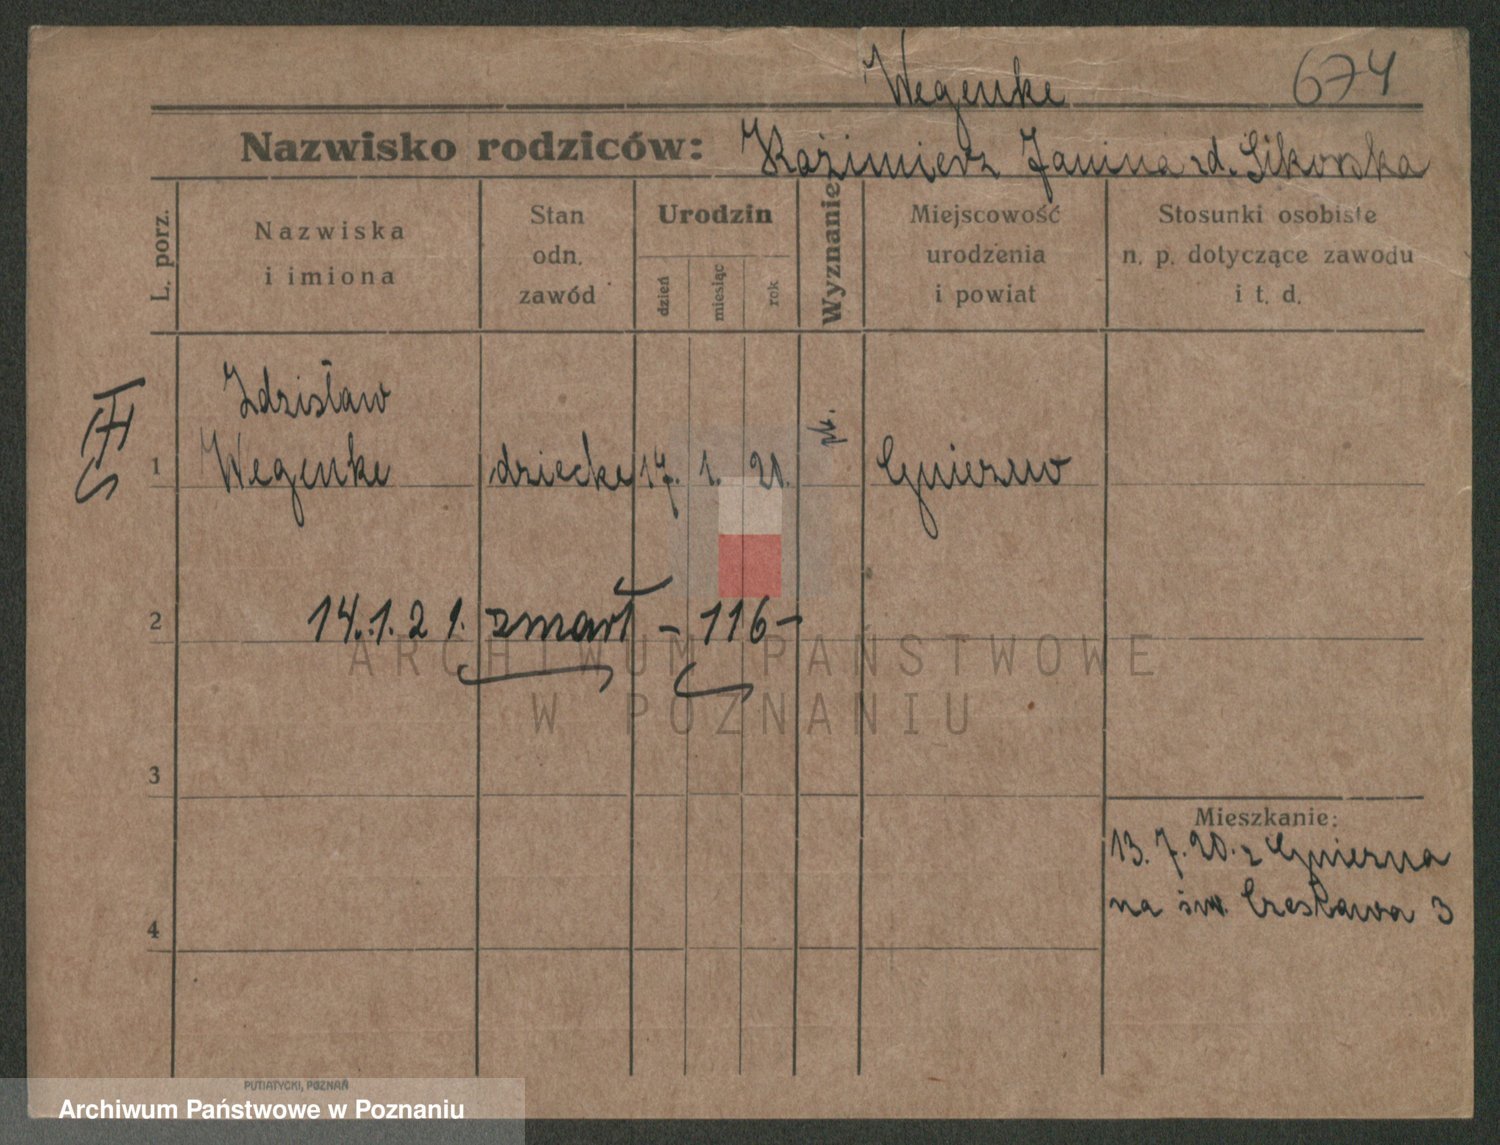 Wegenke 674
Nazwisko rodziców: Kaźimierz Janina zd. Sikorska
L. porz.
Nazwiska
i imiona
Stan
odn.
zawód
Urodzin
dzień
miesiąc
rok
Wyznanie
Miejscowość
urodzenia
i powiat
Stosunki osobiste
n. p. dotyczące zawodu
i t. d.
Zdzisław
1 Wegenke dziecko 17. 1. 21. Gniezno
2 14.1.21. zmarł - 116 -
ARCHIWUM PAŃSTWOWE
W POZNANIU
3
Mieszkanie:
13. 7. 20. z Gniezna
na św. Czesława 3
4
PUTIATYCKI, POZNAŃ
Archiwum Państwowe w Poznaniu